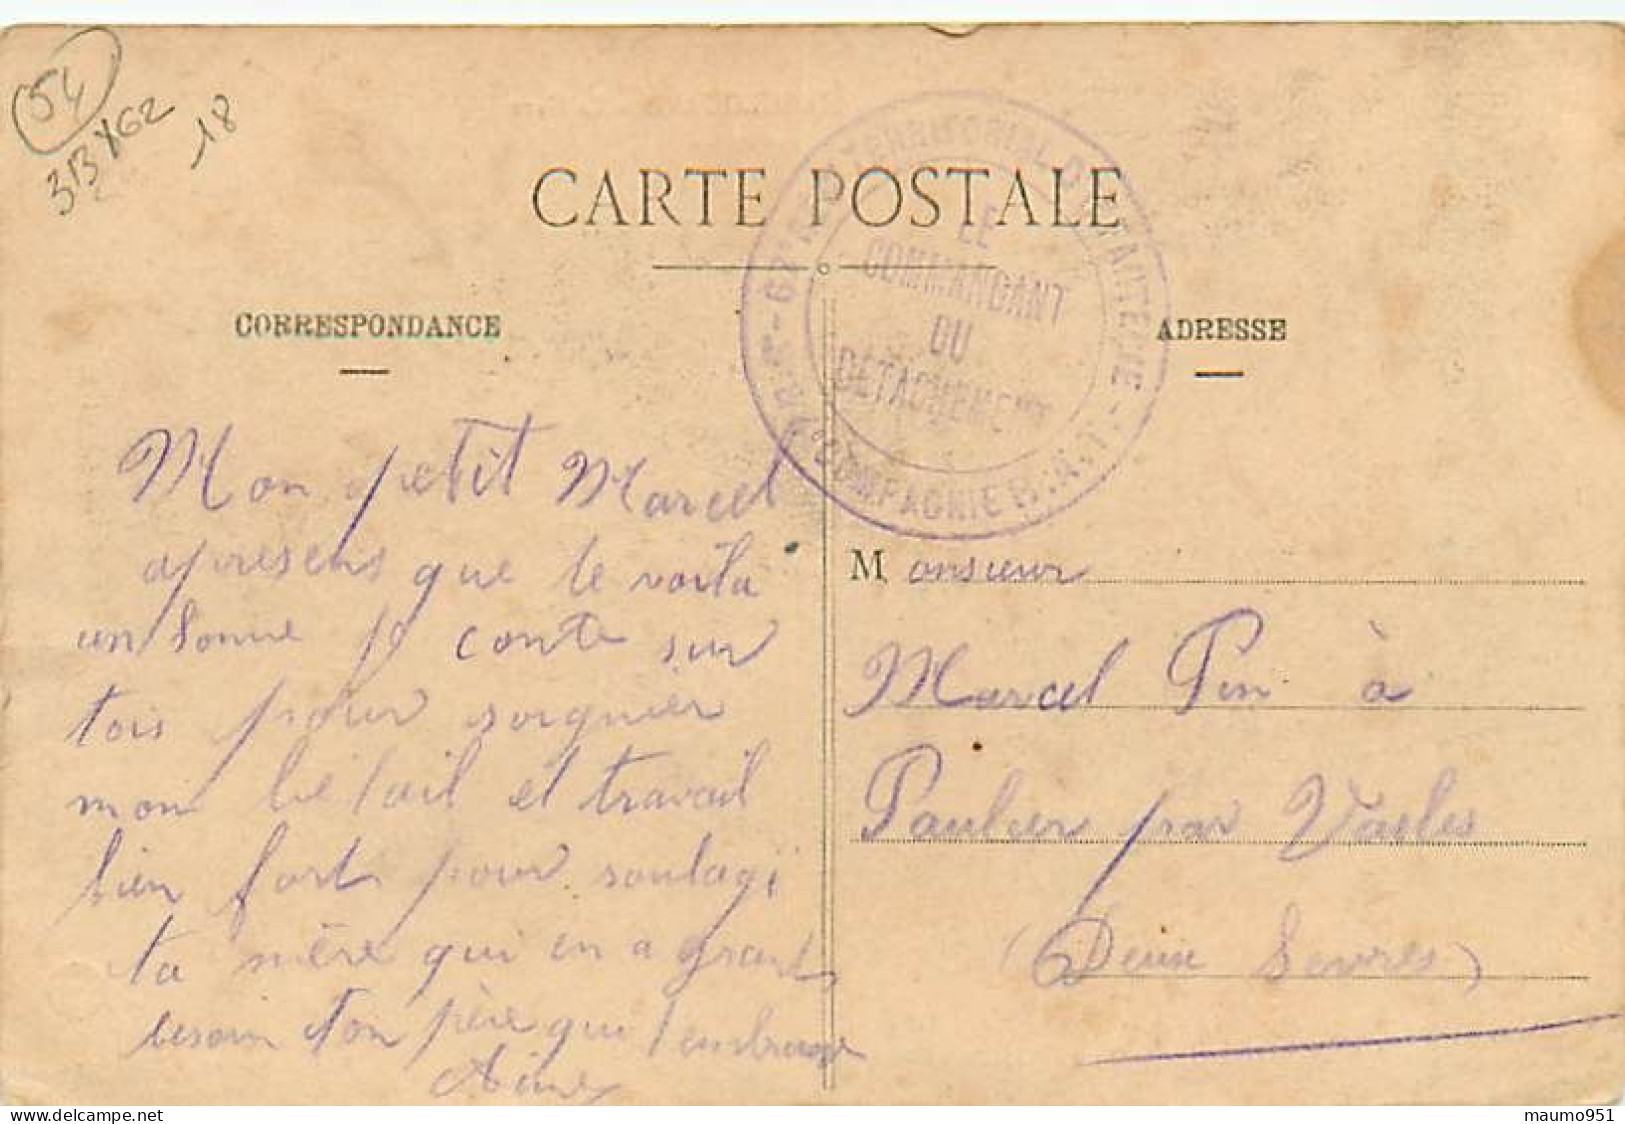 54
313XG2
18
CARTE POSTALE
CORRESPONDANCE
ADRESSE
67e TERRITORIAL D'INFANTERIE
LE
COMMANDANT
DU
DETACHEMENT
COMPAGNIE
Mon petit Marcel
apresens que te voila
un homme je conte sur
tois pour soignier
mon bétail et travail
bien fort pour soulagé
ta mère qui en a grant
besoin ton père qui t'embrasse
Aimé
Monsieur
Marcel Pin à
par Vasles
(Deux Sevres)
maumo951